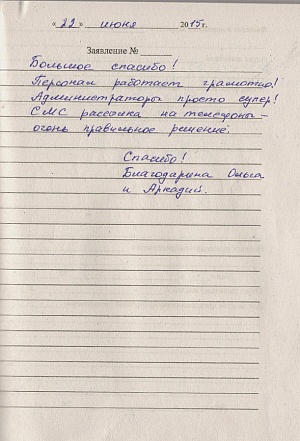 « 22 » июня 2015г.
Заявление № ______
Большое спасибо!
Персонал работает грамотно!
Администраторы просто супер!
СМС рассылка на телефоны –
очень правильное решение.
Спасибо!
Благодарина Ольга
и Аркадий.